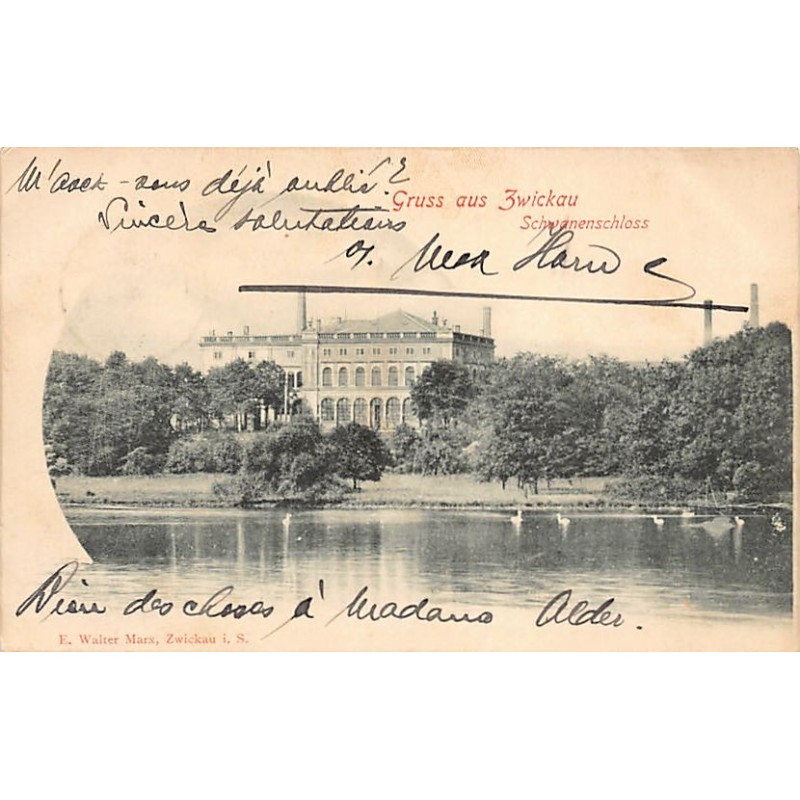 M'avez-vous déjà oublié?
Sincères salutations
Gruss aus Zwickau
Schwanenschloss
Max Horn
Bien des choses à Madame Alder.
E. Walter Marx, Zwickau i. S.